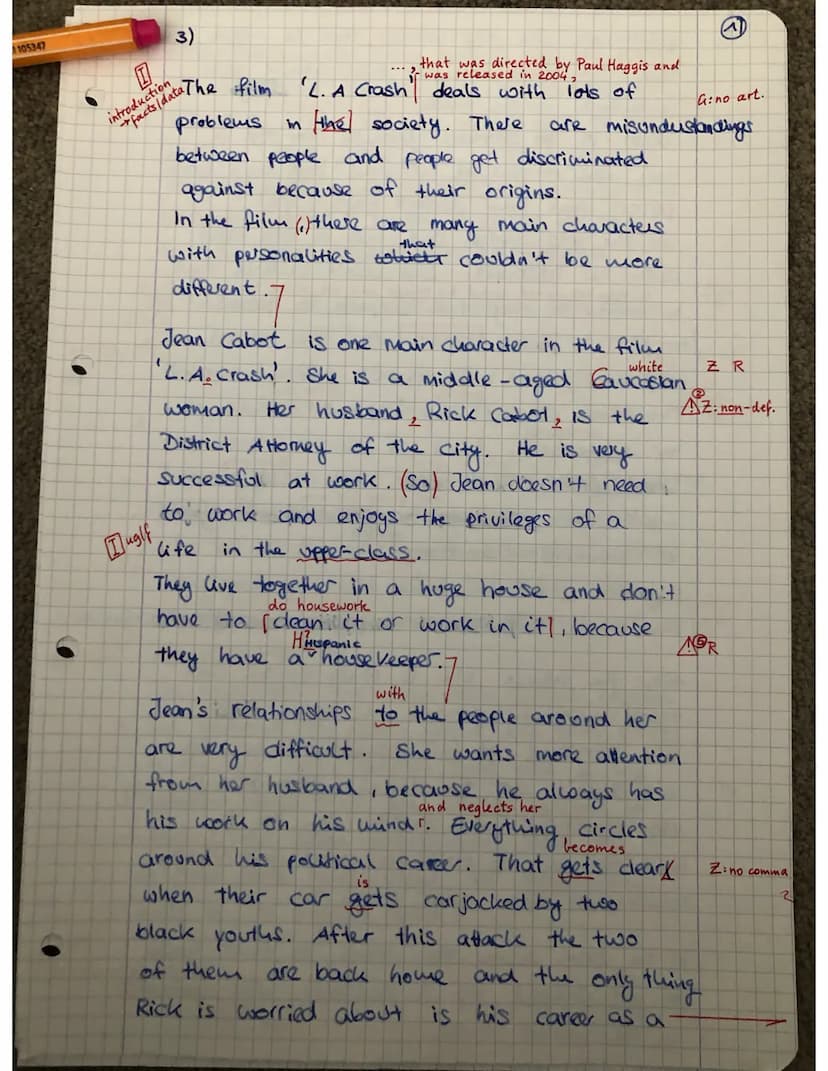 105347
3)
1)
..., that was directed by Paul Haggis and
was released in 2004,
I
introduction
→ facts/data
The film 'L.A Crash' deals with lots of
G: no art.
problems in [the] society. There are misunderstandings
between people and people get discriminated
against because of their origins.
In the film (,) there are many main characters
that
with personalities couldn't be more
different.
Jean Cabot is one main character in the film
white
Z R
'L.A. Crash'. She is a middle-aged Caucasian
② ⚠ Z: non-def.
woman. Her husband, Rick Cabot, is the
District Attorney of the city. He is very
successful at work. (So) Jean doesn't need
to work and enjoys the privileges of a
I uglf
life in the upper-class.
They live together in a huge house and don't
do housework
have to [clean it or work in it], because
Hispanic
⚠ ⑤ R
they have a housekeeper.
with
Jean's relationships to the people around her
are very difficult. She wants more attention
from her husband, because he always has
and neglects her
his work on his mind. Everything circles
becomes
around his political career. That gets clear,
Z: no comma
is
when their car gets carjacked by two
black youths. After this attack the two
of them are back home and the only thing
Rick is worried about is his career as a